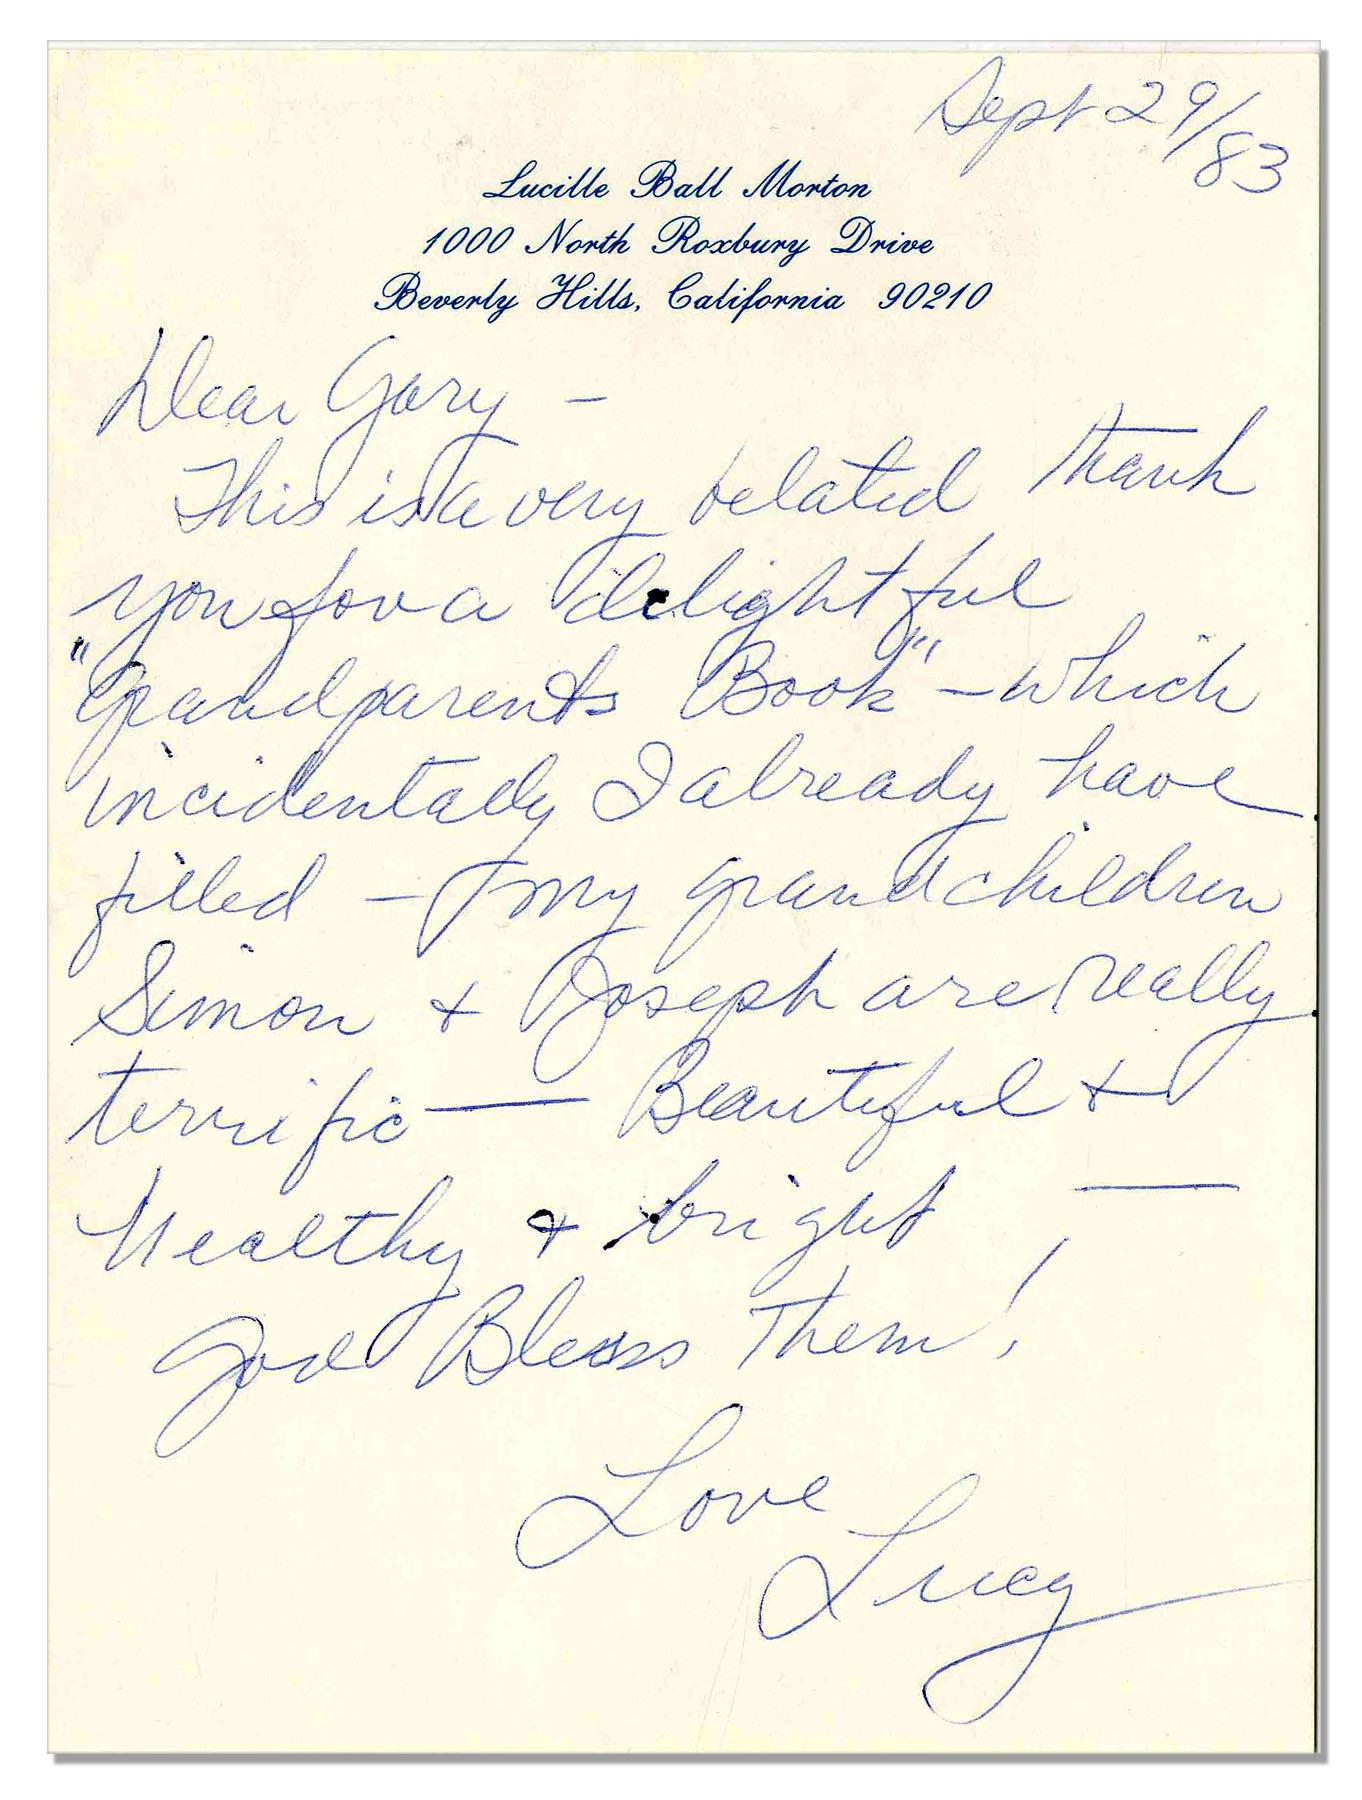 Sept 29/83
Lucille Ball Morton
1000 North Roxbury Drive
Beverly Hills, California 90210
Dear Gary -
This is a very belated thank
you for a delightful
"Grandparents Book" - which
incidentally I already have
filled - my grandchildren
Simon + Joseph are really
terrific — Beautiful +
Healthy + bright, —
God Bless Them!
Love
Lucy